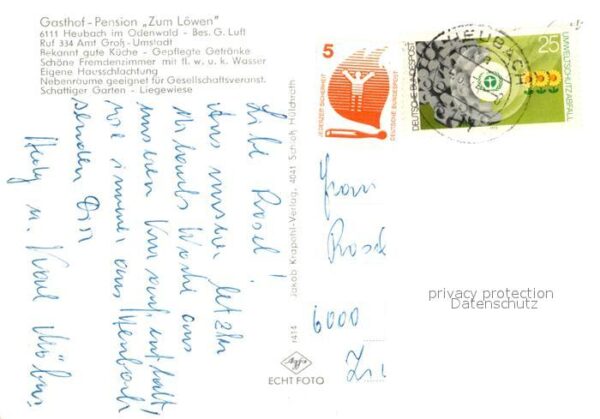 Gasthof - Pension „Zum Löwen"
6111 Heubach im Odenwald - Bes. G. Luft
Ruf 334 Amt Groß-Umstadt
Bekannt gute Küche - Gepflegte Getränke
Schöne Fremdenzimmer mit fl. w. u. k. Wasser
Eigene Hausschlachtung
Nebenräume geeignet für Gesellschaftsveranst.
Schattiger Garten - Liegewiese
Liebe Rosel!
Aus unserer letzten
Urlaubs Woche aus
unseren
wie immer aus Heubach
senden Dir
u. Karl
Jakob Krapohl-Verlag, 4041 Schloß Hülchrath
1414
ECHT FOTO
5
JEDERZEIT SICHERHEIT
DEUTSCHE BUNDESPOST
DEUTSCHE BUNDESPOST
25
UMWELTSCHUTZ: ABFALL
HEUBACH
Frau
6000
privacy protection
Datenschutz